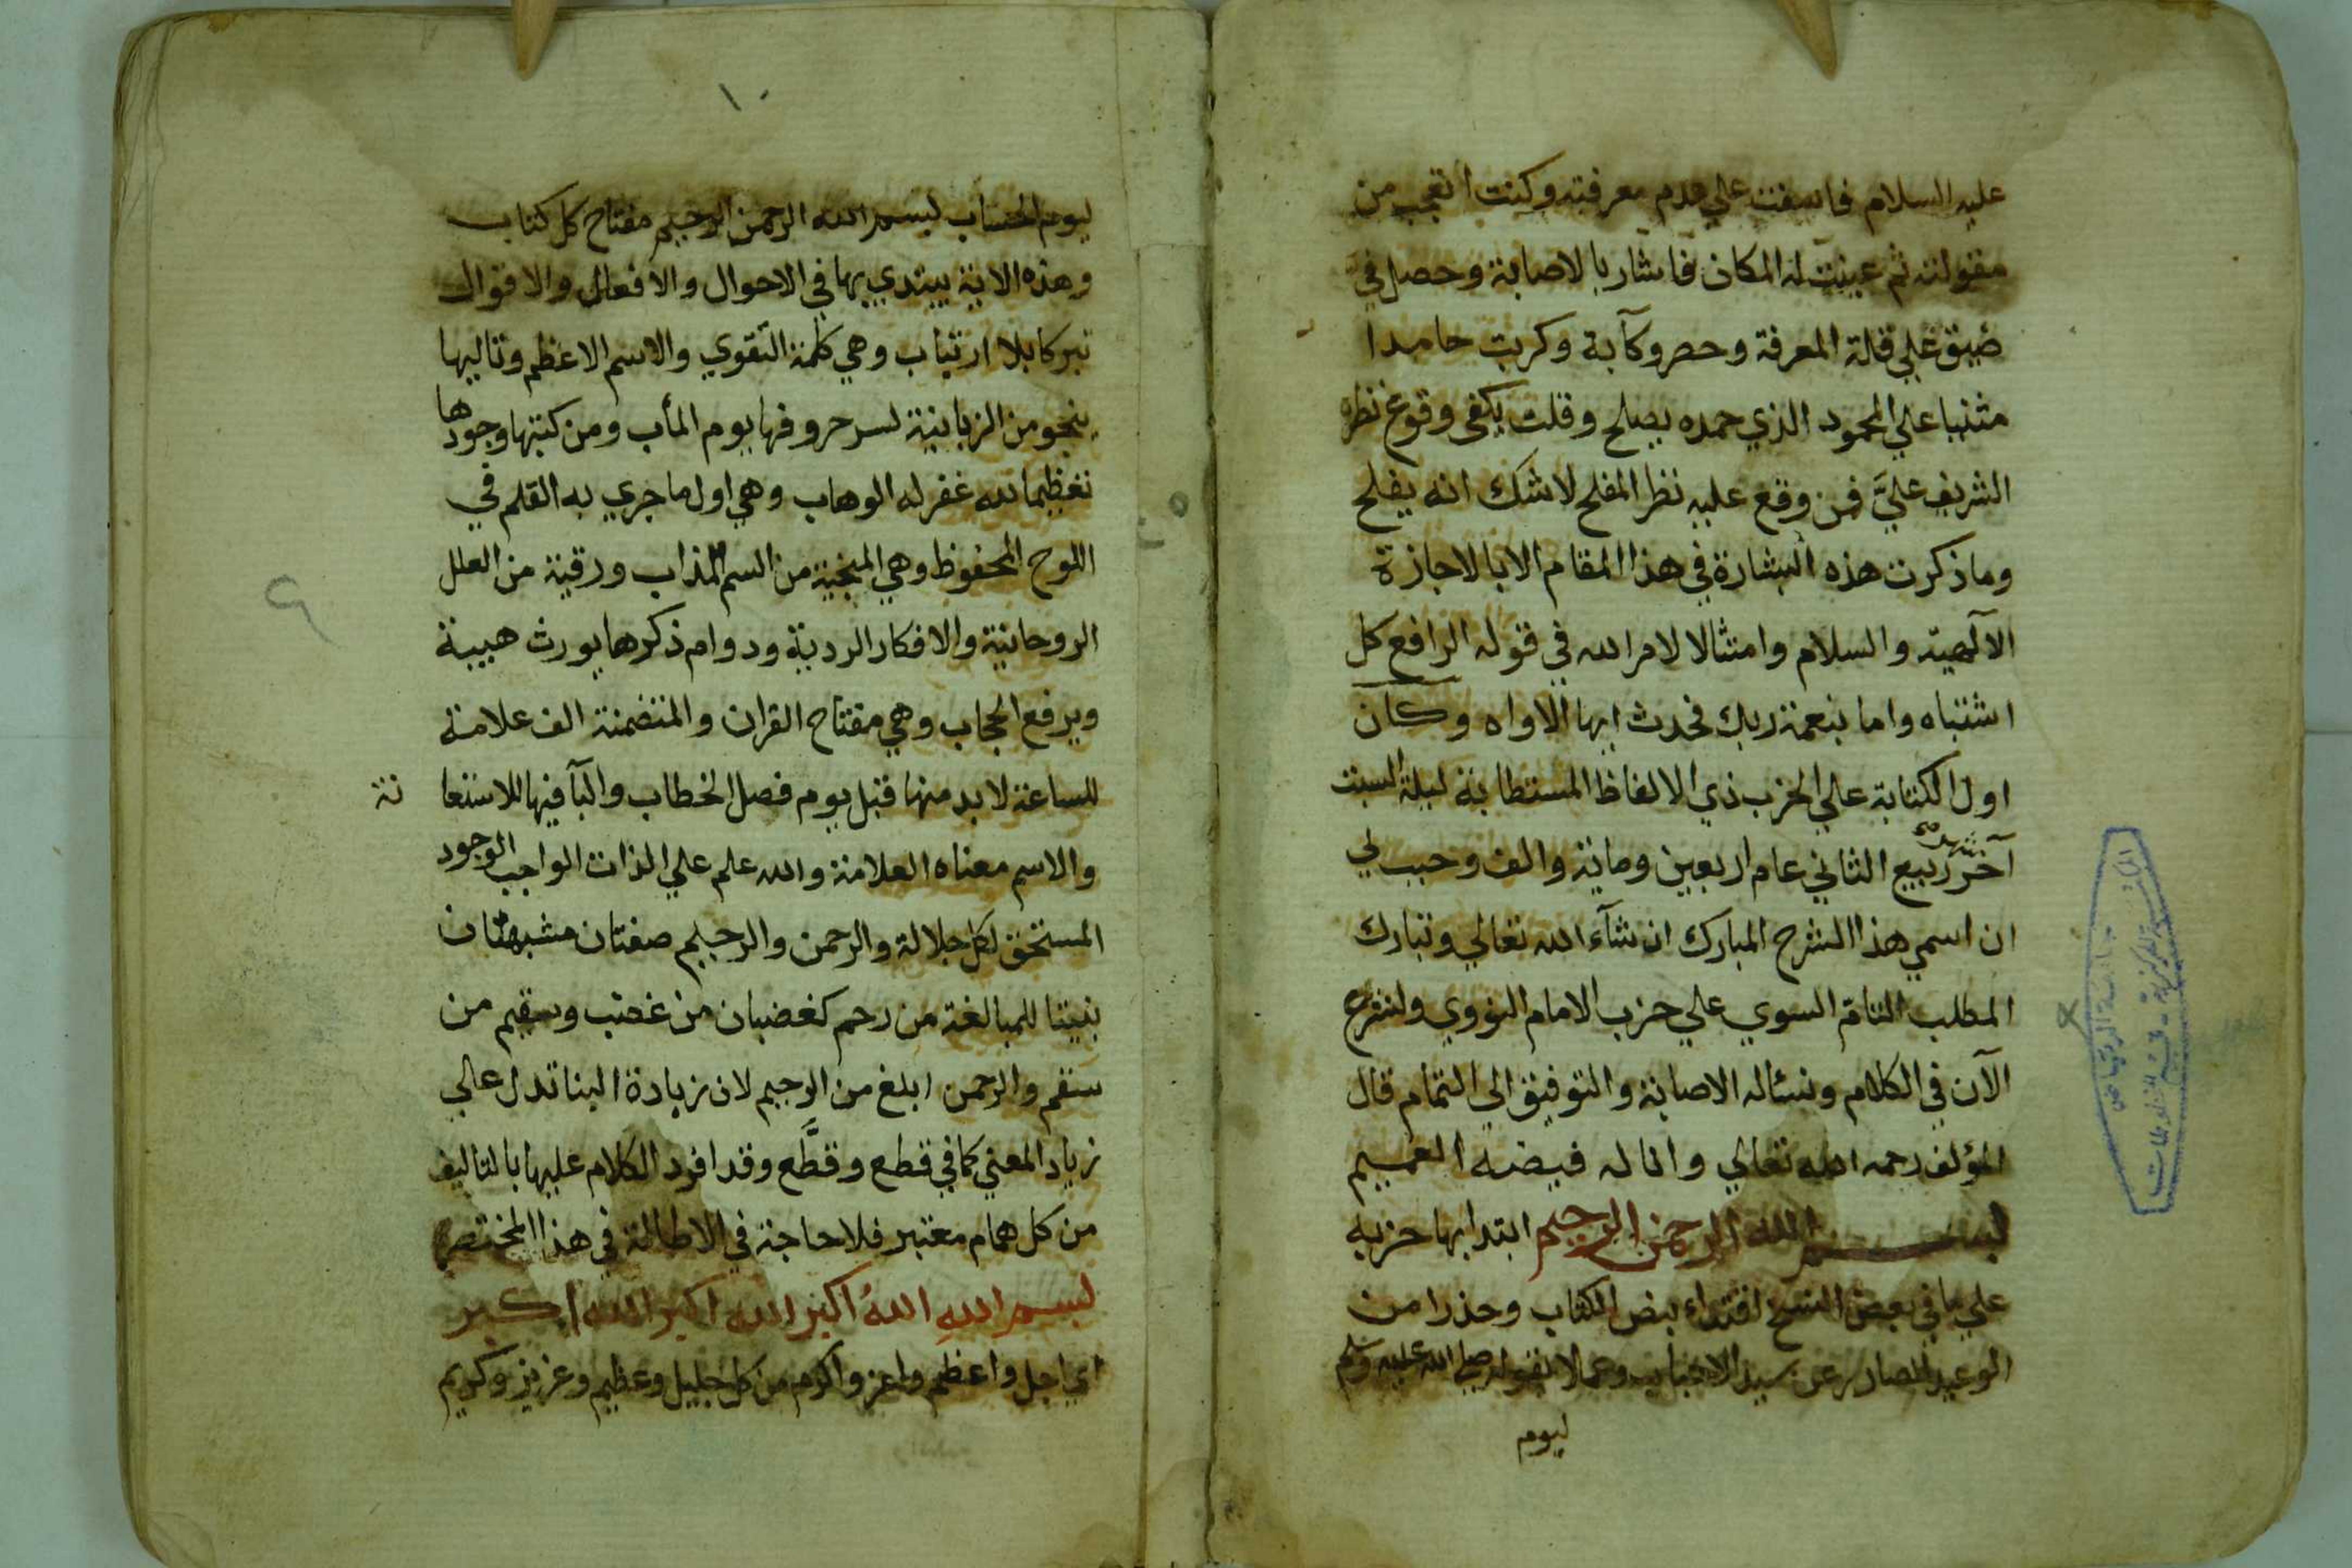 عليه السلام فاسفت علي عدم معرفته وكنت اتعجب من
مقولته ثم عينت له المكان فاشار بالاصابة وحصل لي
ضيق علي قلة المعرفة وحصر وكآبة وكريت حامدا
مثنيا علي المحمود الذي حمده يصلح وقلت يكفي وقوع نظره
الشريف عليَّ فمن وقع عليه نظر المفلح لاشك انه يفلح
وما ذكرت هذه البشارة في هذا المقام الا بالاجازة
الآلهية والسلام وامتثالا لامر الله في قوله الرافع كل
اشتباه واما بنعمة ربك فحدث ايها الاواه وكان
اول الكتابة علي الحزب ذي الالفاظ المستطابة ليلة السبت
آخر شهر ربيع الثاني عام اربعين وماية والف وحبب لي
ان اسمي هذا الشرح المبارك ان شآء الله تعالي وتبارك
المطلب التام السوي علي حزب الامام النووي ولنشرع
الآن في الكلام ونسئاله الاصابة والتوفيق الي التمام قال
المؤلف رحمه الله تعالي وانا له فيضه العميم
بسم الله الرحمن الرحيم ابتدا بها حزبه
علي ما في بعض النسخ اقتداء بنص الكتاب وحذرا من
الوعيد الصادر عن سيد الاحباب وعملا بقوله صلي الله عليه وسلم
ليوم
١٠
ليوم الحساب بسم الله الرحمن الرحيم مفتاح كل كتاب
وهذه الاية يبتدي بها في الاحوال والافعال والاقوال
تبركا بلا ارتياب وهي كلمة التقوي والاسم الاعظم وتاليها
ينجو من الزبانية لسر حروفها يوم المأب ومن كتبها وجودها
تعظيما لله غفر له الوهاب وهي اول ما جري به القلم في
اللوح المحفوظ وهي المنجية من السم المذاب ورقية من العلل
الروحانية والافكار الردية ودوام ذكرها يورث هيبة
ويرفع الحجاب وهي مفتاح القران والمتضمنة الف علامة
للساعة لابد منها قبل يوم فصل الخطاب والبآ فيها للاستعانة
والاسم معناه العلامة والله علم علي الذات الواجب الوجود
المستحق لكل جلالة والرحمن والرحيم صفتان مشبهتان
بنيتا للمبالغة من رحم كغضبان من غضب وسقيم من
سقم والرحمن ابلغ من الرحيم لان زيادة البنا تدل علي
زياد المعني كما في قطع وقطَّع وقد افرد الكلام عليها بالتاليف
من كل همام معتبر فلا حاجة في الاطالة في هذا المختصر
بسم اللهِ اللهُ اكبر الله اكبر الله اكبر
اي اجل واعظم واعز واكرم من كل جليل وعظيم وعزيز وكريم